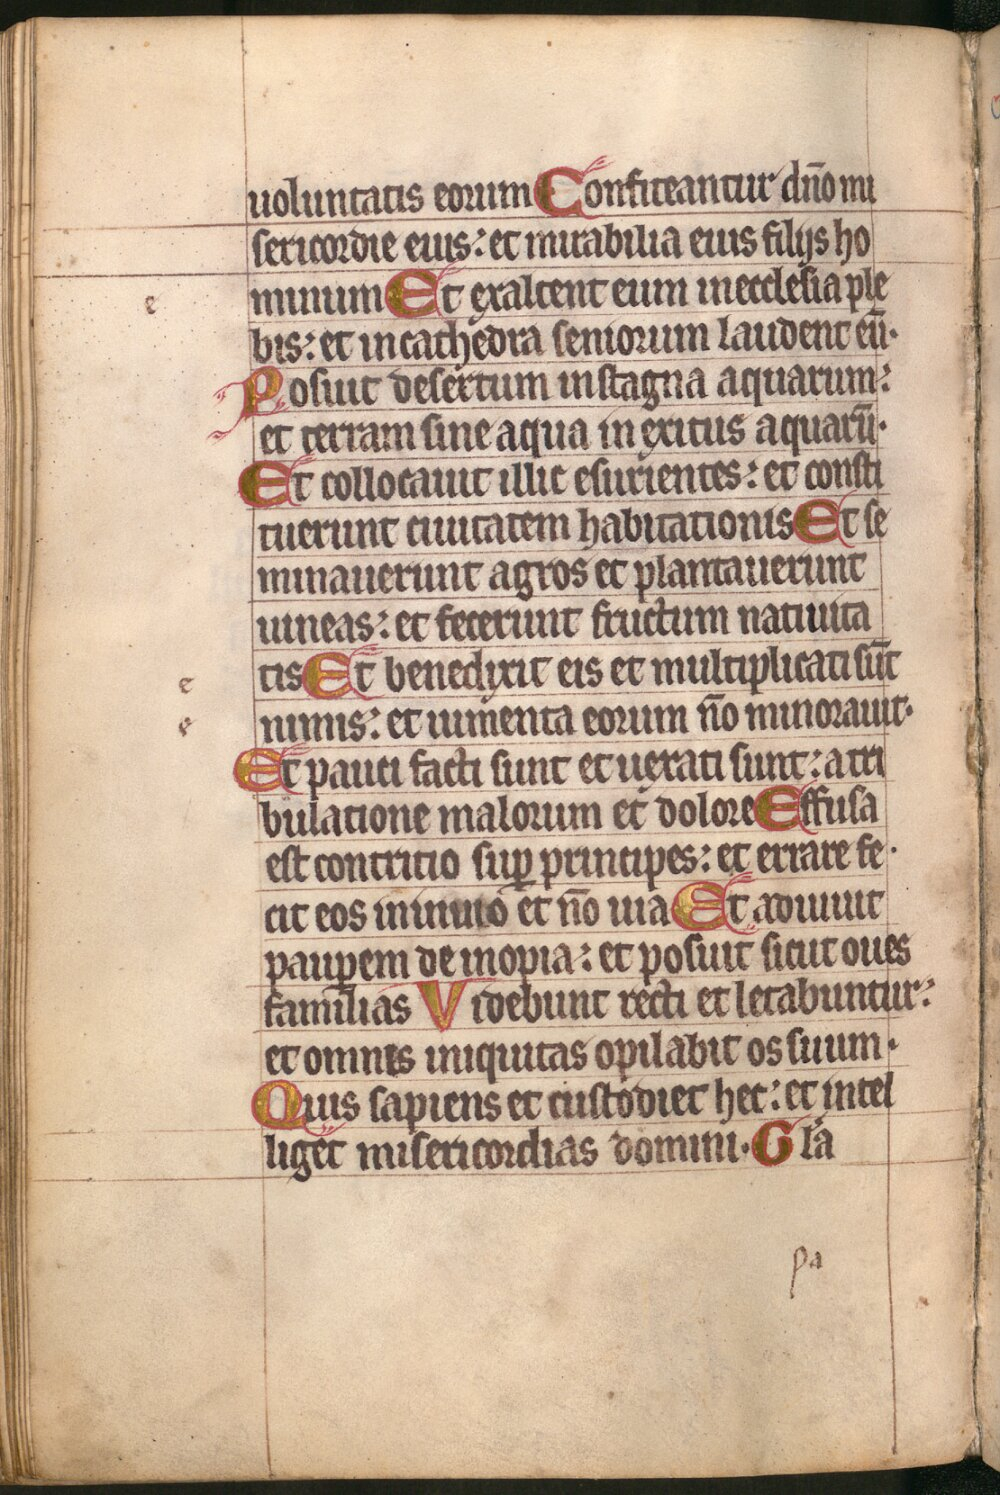 uoluntatis eorum Confiteantur dn̄o mi
sericordie eius: et mirabilia eius filijs ho
minum Et exaltent eum in ecclesia ple
bis: et in cathedra seniorum laudent eū.
Posuit desertum in stagna aquarum:
et terram sine aqua in exitus aquarū.
Et collocauit illic esurientes: et consti
tuerunt ciuitatem habitationis Et se
minauerunt agros et plantauerunt
uineas: et fecerunt fructum natiuita
tis Et benedixit eis et multiplicati sūt
nimis: et iumenta eorum nō minorauit.
Et pauci facti sunt et uexati sunt: a tri
bulatione malorum et dolore Effusa
est contritio suꝑ principes: et errare fe
cit eos in inuio et nō uia Et adiuuit
pauꝑem de inopia: et posuit sicut oues
familias Videbunt recti et letabuntur:
et omnis iniquitas opilabit os suum.
Quis sapiens et custodiet hec: et intel
liget misericordias domini. Gla
e
e
e
pa